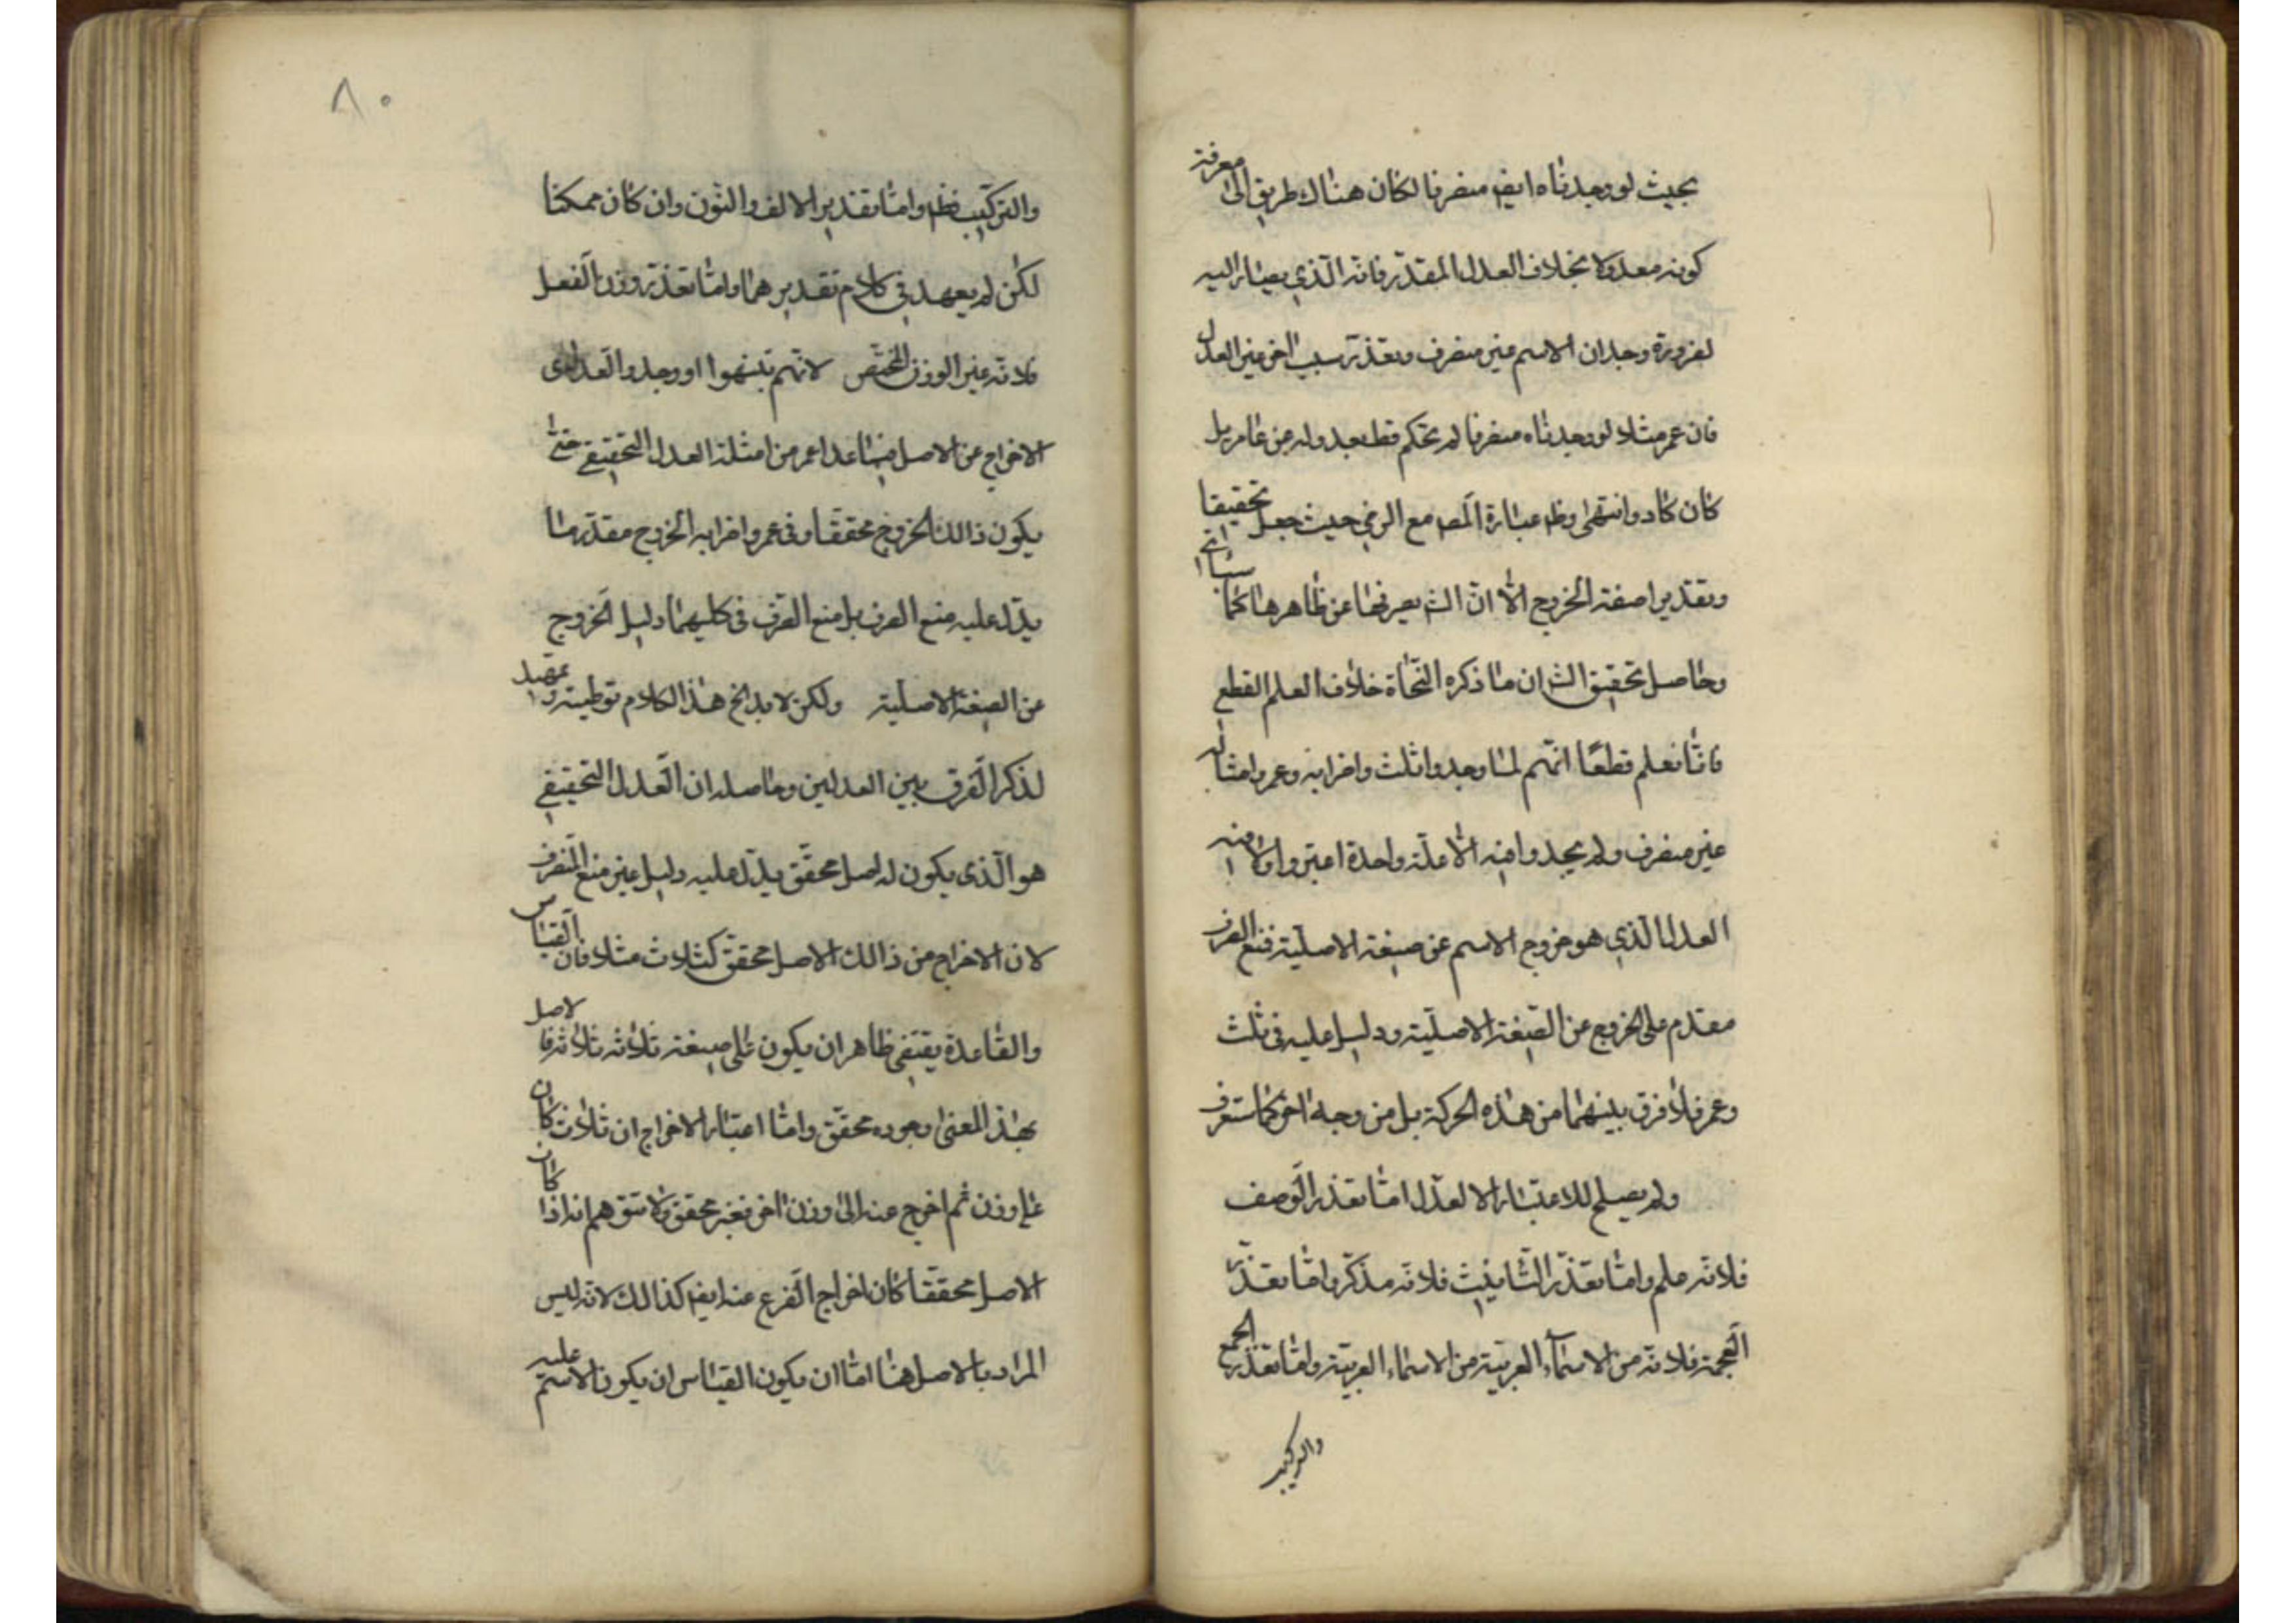 بحيث لو وجدناه ايضا منصرفا لكان هناك طريق الى معرفة
كونه معدولا بخلاف العدل المقدر فانه الذي يصار اليه
لضرورة وجدان الاسم غير منصرف وتعذر سبب اخر غير العدل
فان عمر مثلا لو وجدناه منصرفا لم نحكم قط بعدوله عن عامر بل
كان كاد وانتهى وظ عبارة المص مع الرضي حيث جعل تحقيقا
وتقديرا صفة الخروج الا ان الش يصرفها عن ظاهرها كما سياتي
وحاصل تحقيق الش ان ما ذكره النحاة خلاف العلم القطع
فانا نعلم قطعا انهم لما وجدوا ثلث واضرابه وعمر وامثاله
غير منصرف ولم يجدوا فيه الا علة واحدة اعتبروا
العدل الذي هو خروج الاسم عن صيغة الاصلية فمنع الصرف
مقدم على الخروج عن الصيغة الاصلية ودليل عليه في ثلث
وعمر فلا فرق بينهما من هذه الحركة بل من وجه اخر كما ستعرف
ولم يصلح للاعتبار الا لعدل اما تعذر الوصف
فلانه علم واما تعذر التانيث فلانه مذكر واما تعذر
العجمة فلانه من الاسماء العربية من الاسماء العربية واما تعذر الجمع
والتركيب
٨٠
والتركيب فظ واما تقدير الالف والنون وان كان ممكنا
لكن لم يعهد في كلام تقديرهما واما تعذر وزن الفعل
فلانه غير الوزن المختص لانهم تنبهوا او وجدوا العدل اى
الاخراج عن الاصل فيما عدا عمر من امثلة العدل التحقيقي حتى
يكون ذالك الخروج محققا وفى عمر واضرابه الخروج مقدر ما
يدل عليه منع الصرف بل منع الصرف فى كليهما دليل الخروج
عن الصيغة الاصلية ولكن لا بد لخ هذا الكلام توطية وتمهيد
لذكر الفرق بين العدلين وحاصله ان العدل التحقيقي
هو الذى يكون له اصل محقق يدل عليه دليل غير منع المنصرف
لان الاخراج من ذالك الاصل محقق كثلاث مثلا فان القياس
والقاعدة يقتضى ظاهر ان يكون على صيغة ثلاثه ثلاثه فالاصل
بهذ المعنى وجوده محقق واما اعتبار الاخراج ان ثلاث كان
على وزن ثم اخرج عنه الى وزن اخر فغير محقق ولا تتوهم انه اذا كان
الاصل محققا كان اخراج الفرع عنه ايضا كذالك لانه ليس
المراد بالاصل هنا اما ان يكون القياس ان يكون الاسم عليه